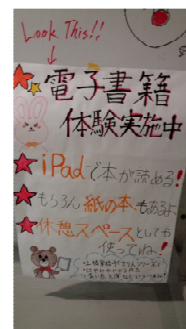 Look This!!
電子書籍
体験実施中
★iPadで本が読める!
★もちろん紙の本もあるよ
★休憩スペースとしても
使ってね!